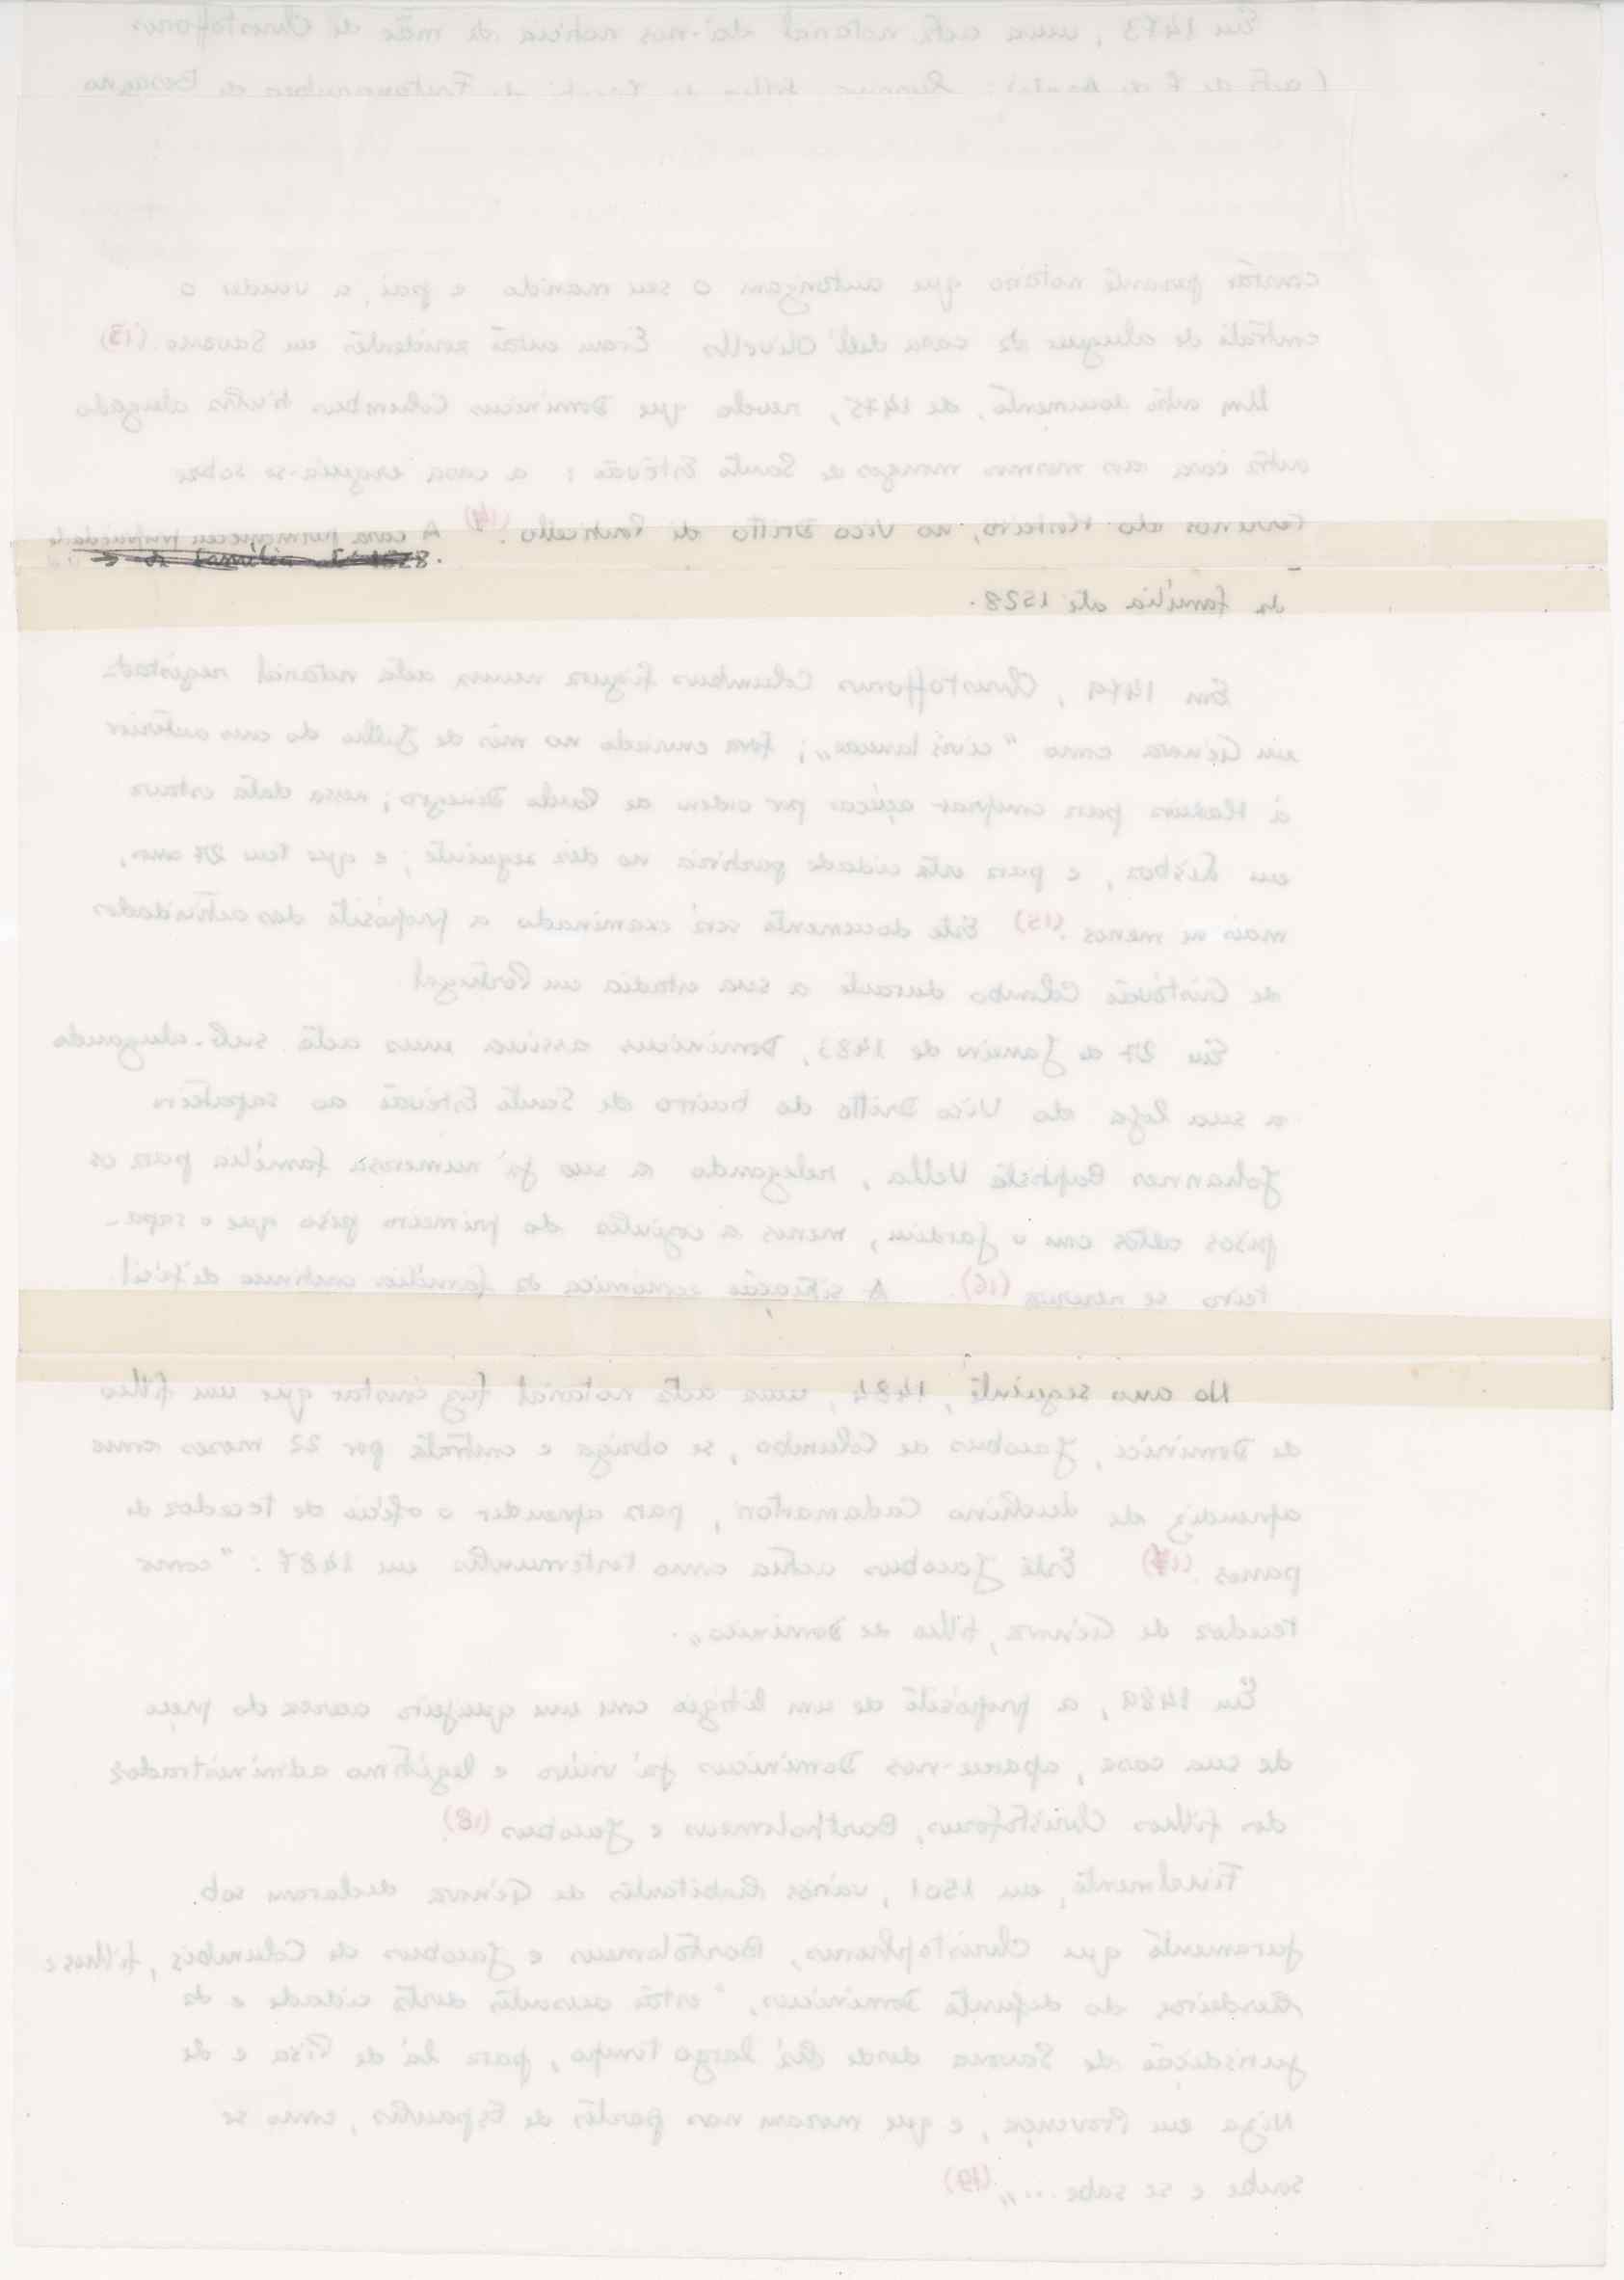 Em 1473, uma acta notarial dá-nos notícia da mãe de Christofforus
constar perante notário que autorizam o seu marido e pai, a vender o
contrato de aluguer da casa dell'Olivella Eram então residentes em Savona (13)
Um outro documento, de 1475, revela que Dominicus Columbus tinha alugado
outra casa aos mesmos monges de Santo Estêvão; a casa erguia-se sobre
terrenos do Mosteiro, no Vico Dritto di Ponticello. (14) A casa permaneceu propriedade
da família até 1528.
da família até 1528.
Em 1479, Christofforus Columbus figura numa acta notarial registada
em Génova como "civis Januae"; fora enviado no mês de Julho do ano anterior
à Madeira para comprar açúcar por ordem de Paolo Dinegro; nessa data estava
em Lisboa, e para esta cidade partiria no dia seguinte; e que tem 27 anos,
mais ou menos. (15) Este documento será examinado a propósito das actividades
de Cristóvão Colombo durante a sua estadia em Portugal
Em 27 de Janeiro de 1483, Dominicus assina uma acta sub-alugando
a sua loja do Vico Dritto do bairro de Santo Estêvão ao sapateiro
Johannes Baptista Vella, relegando a sua já numerosa família para os
pisos altos com o jardim, menos a cozinha do primeiro piso que o sapa-
teiro se reserva (16). A situação económica da família continua difícil
No ano seguinte, 1484, uma acta notarial faz constar que um filho
de Dominicu, Jacobus de Columbo, se obriga e contrata por 22 meses como
aprendiz de Luchino Cadamartori, para aprender o ofício de tecedor de
panos. (17) Este Jacobus actua como testemunha em 1487: "como
tecedor de Génova, filho de Dominicus".
Em 1489, a propósito de um litígio com um queijeiro acerca do preço
de sua casa, aparece-nos Dominicus já viúvo e legítimo administrador
dos filhos Christoforus, Bartholomeus e Jacobus (18).
Finalmente, em 1501, vários habitantes de Génova declaram sob
juramento que Christophorus, Bartolomeus e Jacobus de Columbis, filhos e
herdeiros do defunto Dominicus, "estão ausentes desta cidade e da
jurisdição de Savona desde há largo tempo, para lá de Pisa e de
Niza em Provença, e que moram nas partes de Espanha, como se
soube e se sabe..." (19)